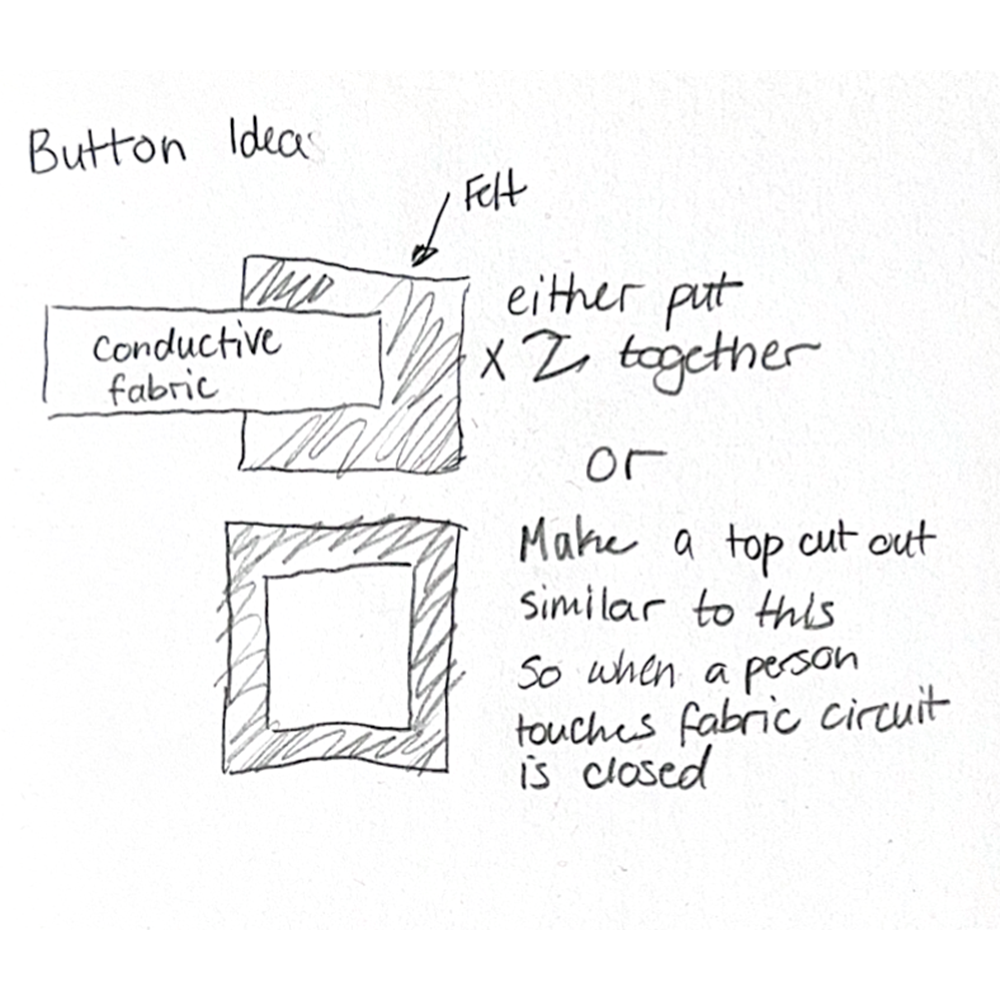 Button Ideas
Felt
conductive
fabric
either put
x 2 together
or
Make a top cut out
similar to this
so when a person
touches fabric circuit
is closed